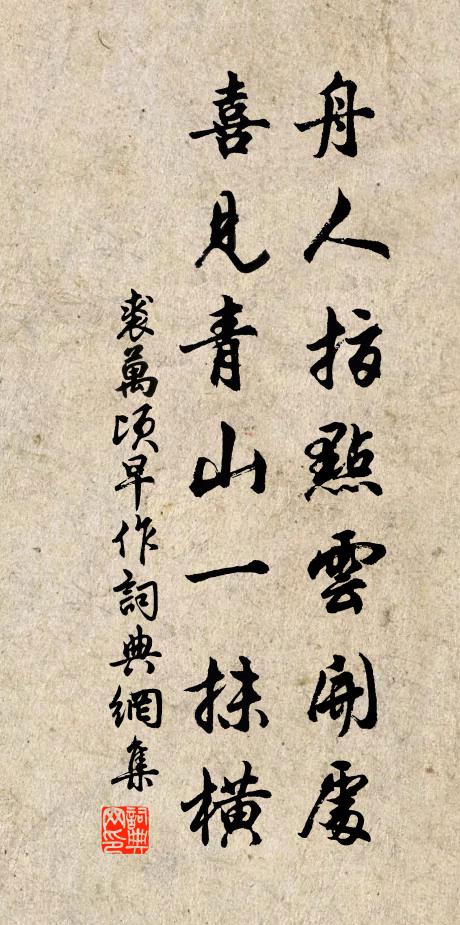 舟人指點雲開處
喜見青山一抹橫
裘萬頃早作詞典網集
詞典网印